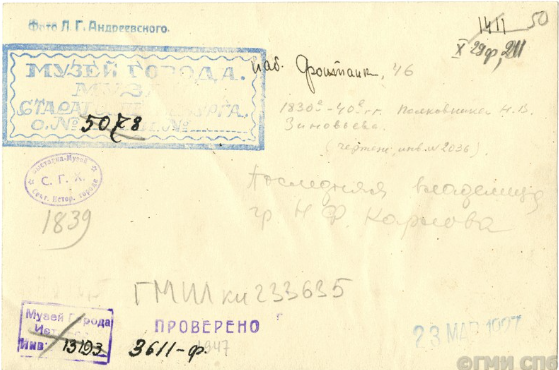 Фото Л. Г. Андреевского.
1411 50
X 29ф, 211
МУЗЕЙ ГОРОДА.
МУЗ.
О. № 5078 №
наб. Фонтанки, 46
1830х-40х гг. полковника Н.В.
Зиновьева.
(чертеж инв. № 2036)
С. Г. Х.
1839
Последняя владелица
гр Н Ф Карлова
ГМИЛ кп 233635
Музей Города
Инв. 13193
ПРОВЕРЕНО
1947
3611-ф.
23 МАЯ 1927
©ГМИ СПб